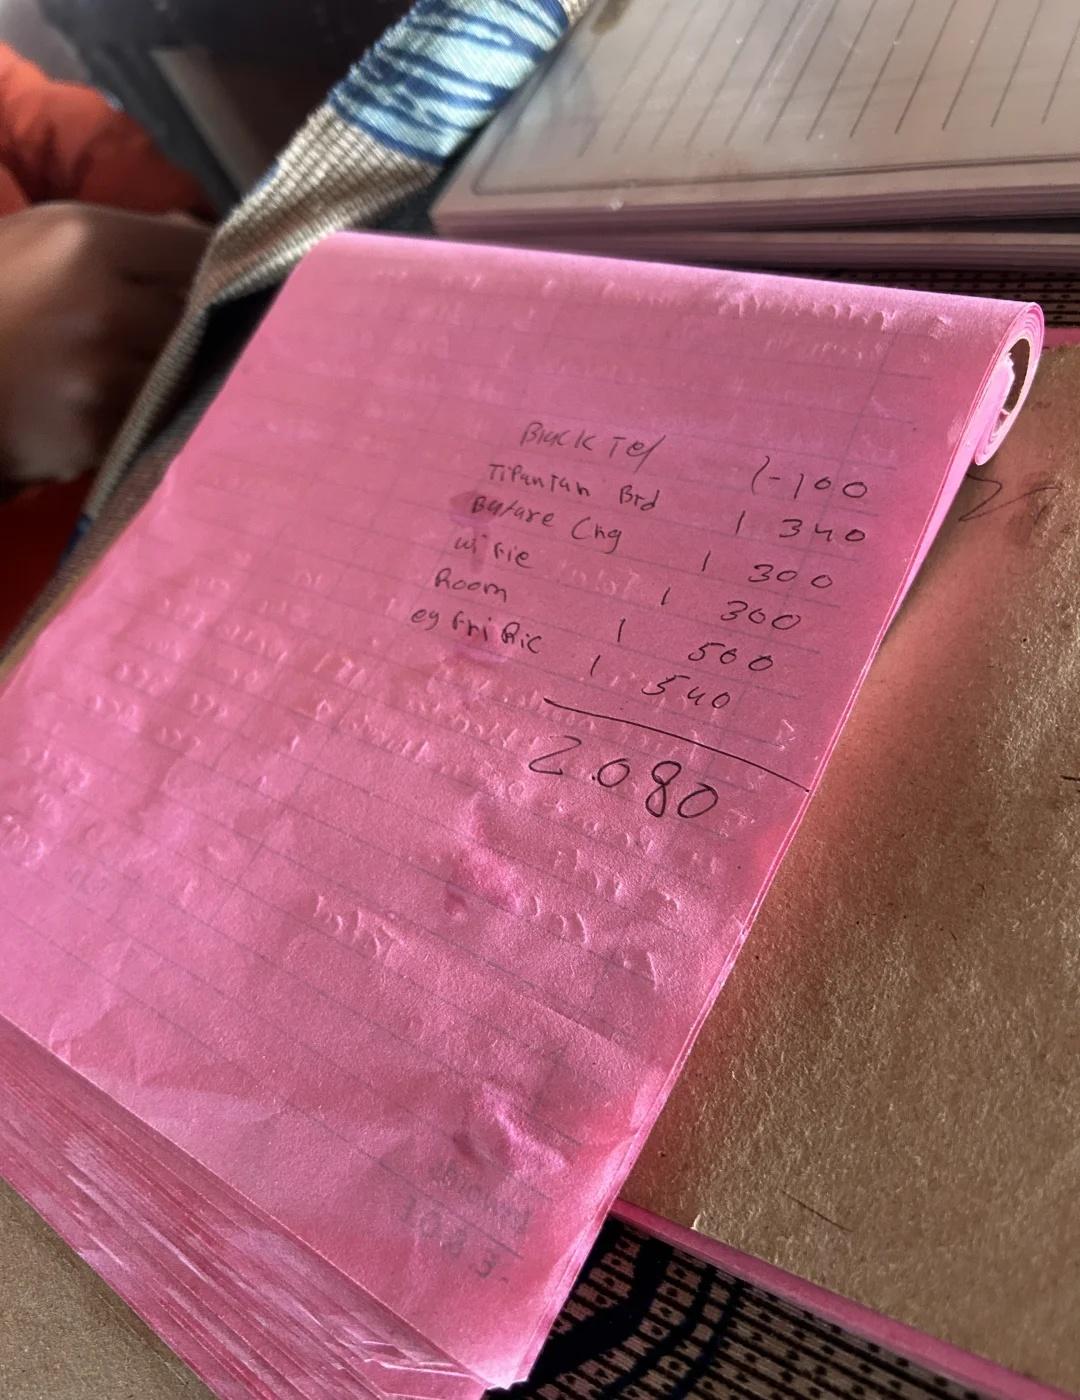 Black Tel 1-100
Tipantan Brd 1 340
Batare Chg 1 300
wi fie 1 300
Room 1 500
eg fri Ric 1 540
2080